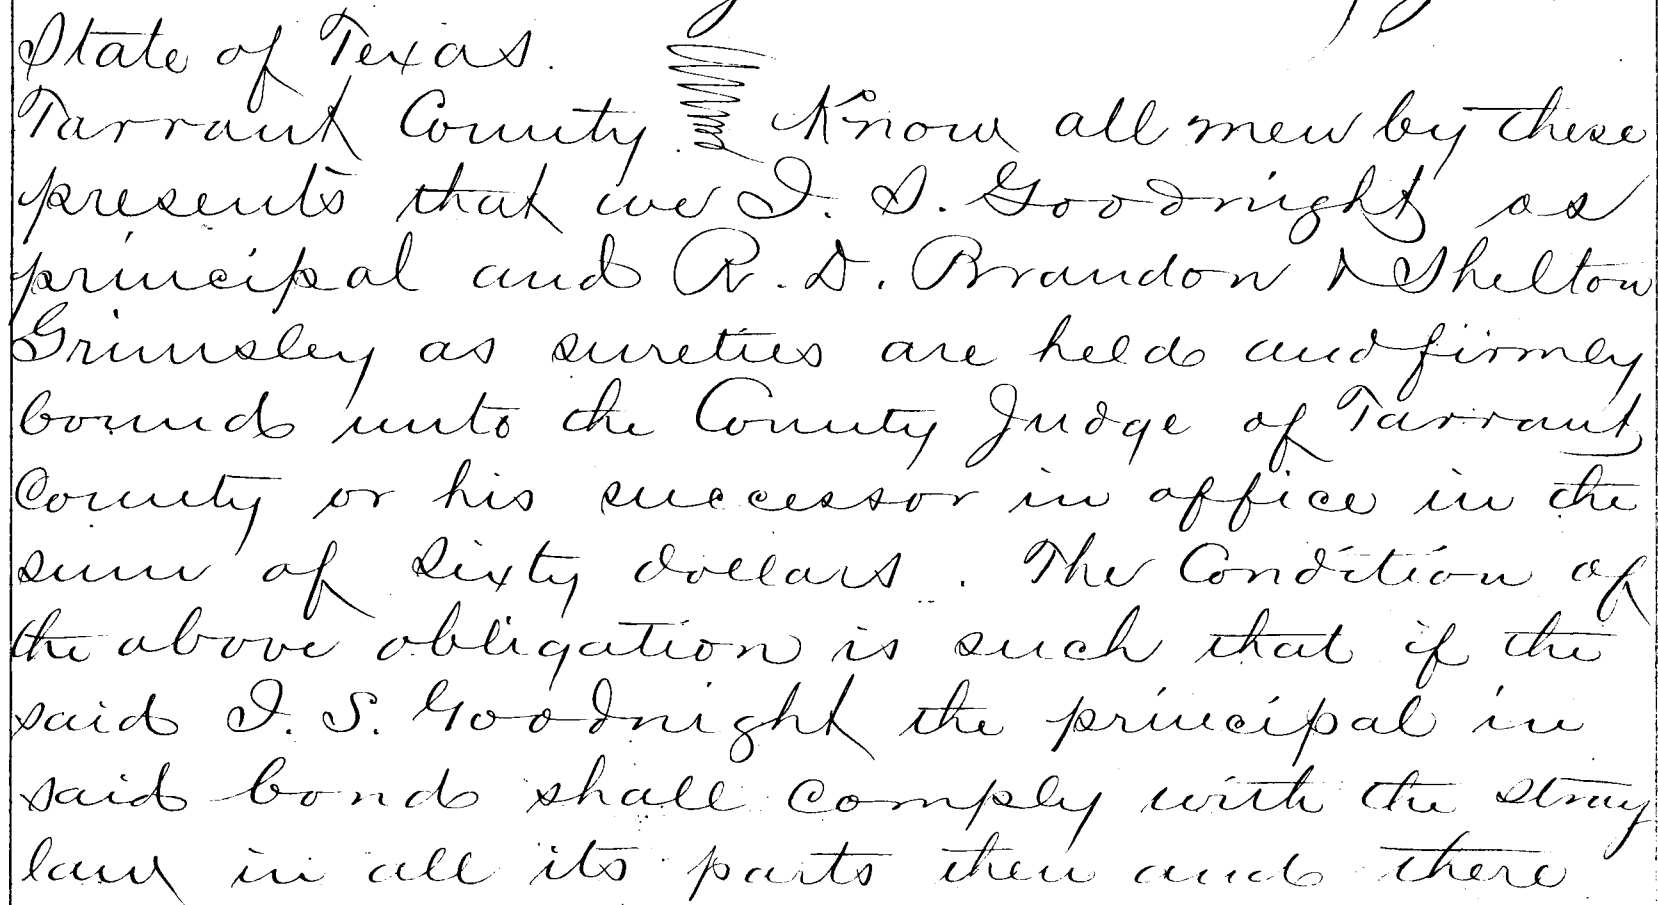 State of Texas.
Tarrant County. Know all men by these
presents that we I. S. Goodnight as
principal and R. D. Brandon & Shelton
Grimsley as sureties are held and firmly
bound unto the County Judge of Tarrant
County or his successor in office in the
sum of Sixty dollars. The Condition of
the above obligation is such that if the
said I. S. Goodnight the principal in
said bond shall comply with the stray
law in all its parts then and there